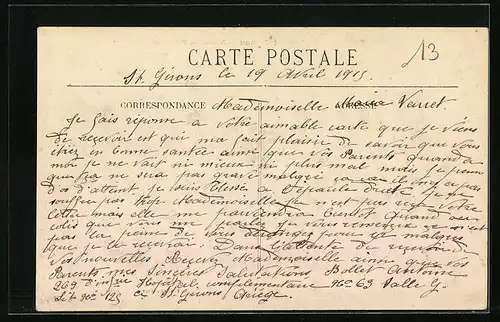 13
CARTE POSTALE
St. Girons le 19 Avril 1915
CORRESPONDANCE Mademoiselle Maria Verret
Je fais réponse a votre aimable carte que je viens
De recevoir et qui ma fait plaisir de savoir que vous
étiez en bonne santée ainsi que vos Parents quand a
moi je ne vait ni mieux ni plus mal mais je pense
que sa ne sera pas grave malgré
d'os d'attent je suis Blessé a Epaule droite je ne
souffre pas trop Mademoiselle je n'est pas reçu votre
lettre mais elle me parviendra bientot Quand au
colis que vous me je vous remercie ce n'est
pas la peine de vous déranger pour
que je le recevrai. Dans l'attente de recevoir
vos nouvelles, Recevez Mademoiselle ainsi que vos
Parents mes Sincères Salutations Bollet Antoine
269 D'inf Hopital complémentaire No 63 Salle G
Lit No 125 St Girons Ariège.